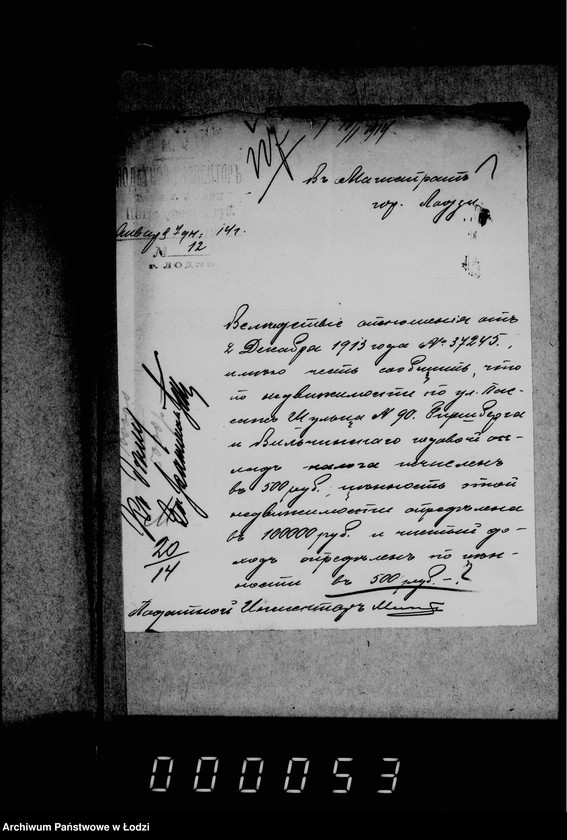 Въ Магистратъ
гор. Лодзи
Января 9 дня 14 г.
№ 12
г. ЛОДЗЬ
Вслѣдствіе отношенія отъ
2 Декабря 1913 года № 37245,
имѣю честь сообщить, что
по недвижимости по ул. Пас-
сажъ Шульца № 90. Гиршберга
и Вильчинскаго годовой ок-
ладъ налога исчисленъ
въ 500 руб., цѣнность этой
недвижимости опредѣлена
въ 100000 руб. и чистый до-
ходъ опредѣленъ по цѣн-
ности въ 500 руб. - ?
Податной Инспекторъ
20
14
000053
Archiwum Państwowe w Łodzi